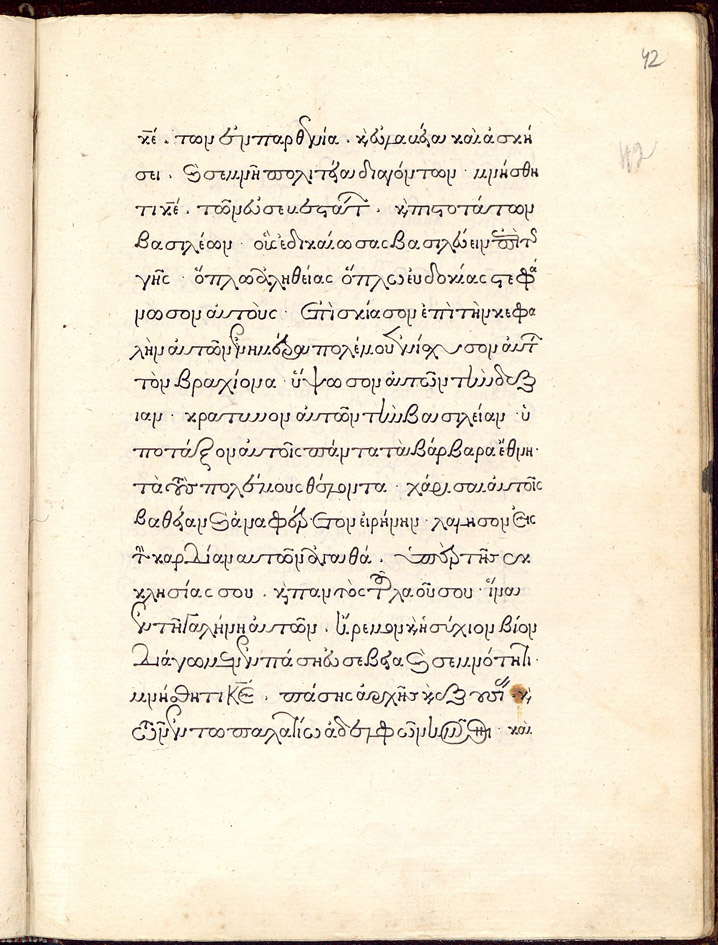 42
42
κε. τῶν ἐν παρθενία. κ εὐλαβεία καὶ ἀσκή
σει. κ σεμνῇ πολιτεία διαγόντων. μνήσθη
τι κε. τῶν εὐσεβεστάτ. κ πιστοτάτων
βασιλέων. οὓς ἐδικαίωσας βασιλεύειν ἐπὶ τ
γῆς. ὅπλω ἀληθείας ὅπλω εὐδοκίας στεφά
νωσον αὐτούς. ἐπισκίασον ἐπὶ τὴν κεφα
λὴν αὐτῶν ἐν ἡμέρα πολέμου ἐνίσχυσον αὐτ
τὸν βραχίονα. ὕψωσον αὐτῶν τὴν δεξ
ιάν. κράτυνον αὐτῶν τὴν βασιλείαν. ὑ
πόταξον αὐτοῖς πάντα τὰ βάρβαρα ἔθνη.
τὰ τοὺς πολέμους θέλοντα. χάρισαι αὐτοῖς
βαθεῖαν κ ἀναφαίρετον εἰρήνην. λάλησον εἰς
τ καρδίαν αὐτῶν ἀγαθά. ὑπὲρ τῆς ἐκ
κλησίας σου. κ παντὸς τοῦ λαοῦ σου. ἵνα
ἐν τῇ γαλήνη αὐτῶν. ἤρεμον κ ἡσύχιον βίον
διάγωμεν ἐν πάση εὐσεβεία κ σεμνότητι.
μνήσθητι κε. πάσης ἀρχῆς κ ἐξουσί κ
τῶν ἐν τῶ παλατίω ἀδελφῶν ἡμῶν. καὶ